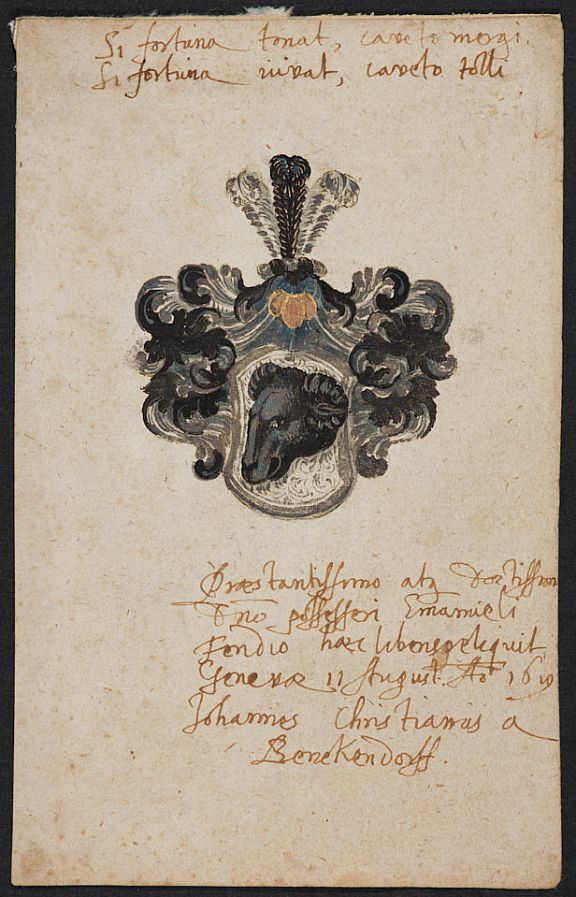 Si fortuna tonat, caveto mergi.
Si fortuna iuvat, caveto tolli
Præstantissimo atq Doctissimo
Dno possessori Emanueli
hæc libens reliquit
Genevæ 11 August. Ao
Johannes Christianus a
Benckendorff.